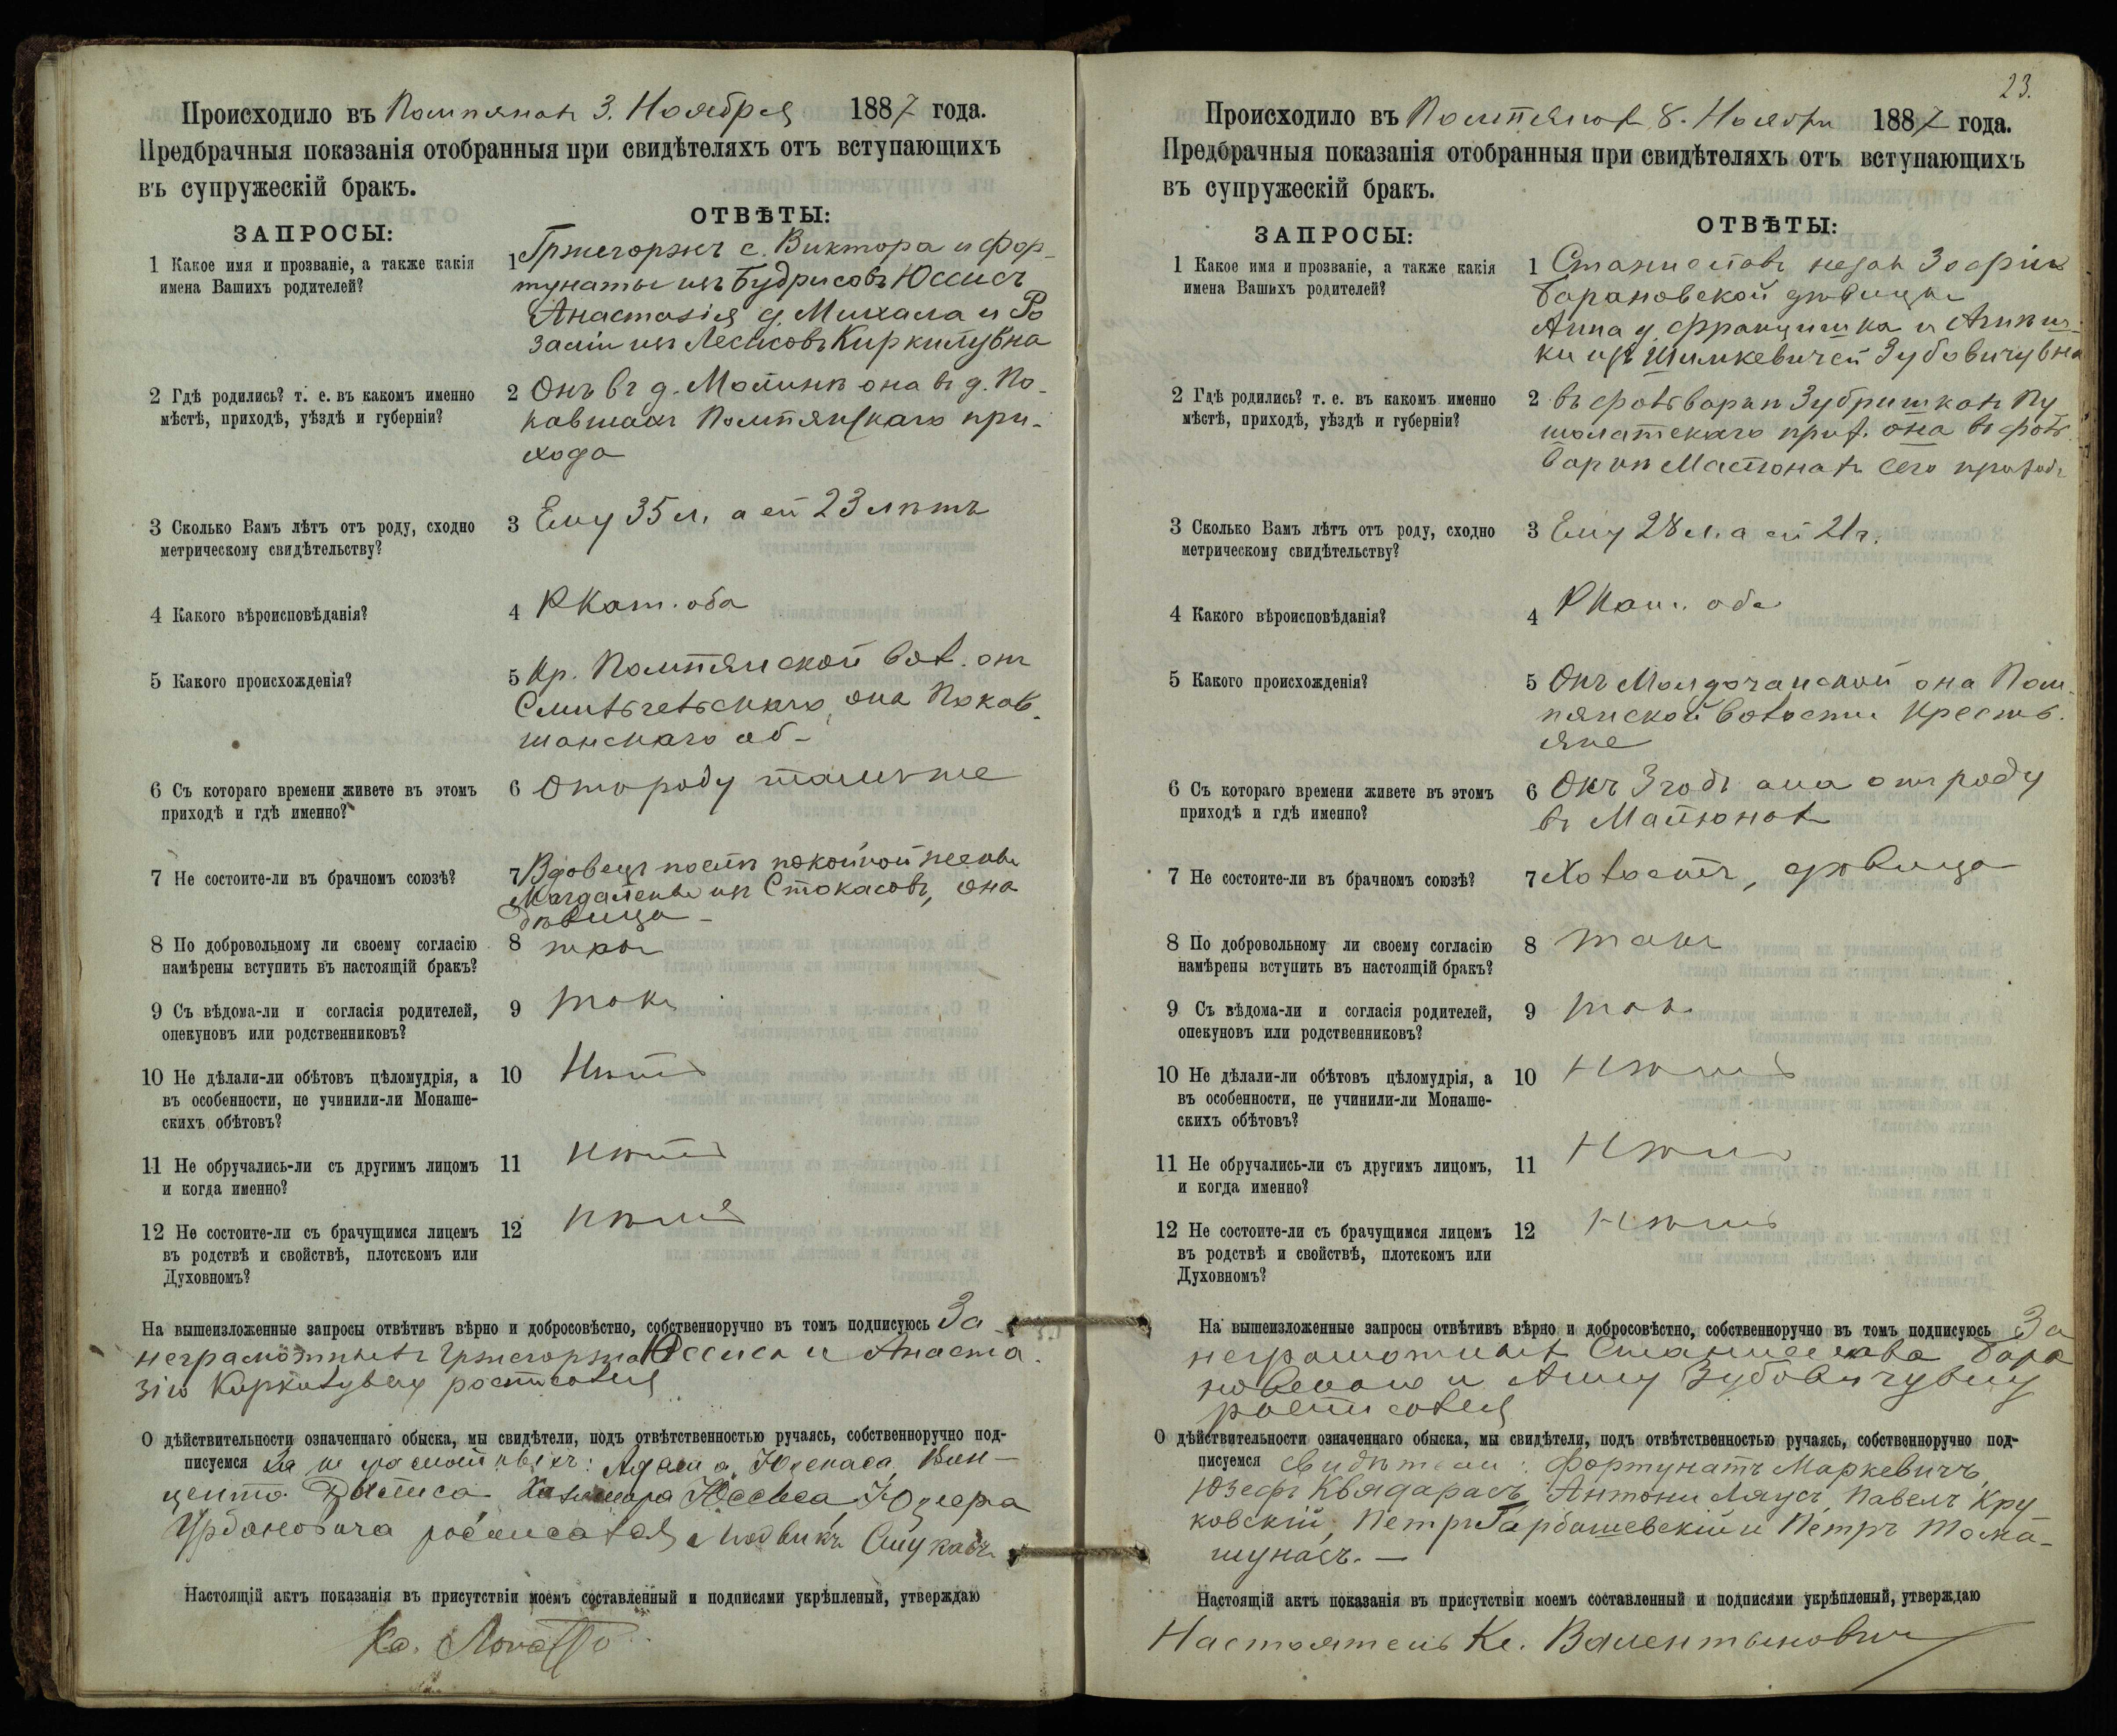 Происходило въ Помпянах 3. Ноября 1887 года.
Предбрачныя показанія отобранныя при свидѣтеляхъ отъ вступающихъ
въ супружескій бракъ.
ЗАПРОСЫ:
ОТВѢТЫ:
1 Какое имя и прозваніе, а также какія
имена Вашихъ родителей?
1 Гржегоржъ с. Виктора и Фор-
тунаты изъ Будрисовъ Юссисъ
Анастазія д. Михала и Ро
заліи изъ Лесисовъ Киркилувна
2 Гдѣ родились? т. е. въ какомъ именно
мѣстѣ, приходѣ, уѣздѣ и губерніи?
2 Онъ въ д. она въ д. По-
Помпянскаго при-
хода
3 Сколько Вамъ лѣтъ отъ роду, сходно
метрическому свидѣтельству?
3 Ему 35 л. а ей 23 лѣтъ
4 Какого вѣроисповѣданія?
4 РКат. оба
5 Какого происхожденія?
5 Кр. Помпянской вол. онъ
она Поков-
шанскаго об-
6 Съ котораго времени живете въ этомъ
приходѣ и гдѣ именно?
6 Отъ роду тамъ же
7 Не состоите-ли въ брачномъ союзѣ?
7 Вдовецъ послѣ покойной жены
Магдалены изъ Стокасовъ, она
дѣвица
8 По добровольному ли своему согласію
намѣрены вступить въ настоящій бракъ?
8 такъ
9 Съ вѣдома-ли и согласія родителей,
опекуновъ или родственниковъ?
9 такъ
10 Не дѣлали-ли обѣтовъ цѣломудрія, а
въ особенности, не учинили-ли Монаше-
скихъ обѣтовъ?
10 Нѣтъ
11 Не обручались-ли съ другимъ лицомъ
и когда именно?
11 нѣтъ
12 Не состоите-ли съ брачущимся лицемъ
въ родствѣ и свойствѣ, плотскомъ или
Духовномъ?
12 нѣтъ
На вышеизложенные запросы отвѣтивъ вѣрно и добросовѣстно, собственноручно въ томъ подписуюсь За
неграмотныхъ Гржегоржа Юссиса и Анаста-
зію Киркилувну росписался
О дѣйствительности означеннаго обыска, мы свидѣтели, подъ отвѣтственностью ручаясь, собственноручно под-
писуемся За неграмотныхъ: Адама Юссиса, Вин-
цента Казимера Юссиса, Юзефа
Урбановича росписался Людвикъ
Настоящій актъ показанія въ присутствіи моемъ составленный и подписями укрѣпленый, утверждаю
Кс.
23.
Происходило въ Помпянах 8. Ноября 1887 года.
Предбрачныя показанія отобранныя при свидѣтеляхъ отъ вступающихъ
въ супружескій бракъ.
ЗАПРОСЫ:
ОТВѢТЫ:
1 Какое имя и прозваніе, а также какія
имена Вашихъ родителей?
1 Станиславъ незак Зофіи
Барановской дѣвицы
Анна д. Францишка и
ки изъ Шимкевичей Зубовичувна
2 Гдѣ родились? т. е. въ какомъ именно
мѣстѣ, приходѣ, уѣздѣ и губерніи?
2 въ фольваркѣ Зубришкахъ Пу
шолатскаго прих. она въ фоль
варкѣ сего прихода
3 Сколько Вамъ лѣтъ отъ роду, сходно
метрическому свидѣтельству?
3 Ему 28 л. а ей 21 г.
4 Какого вѣроисповѣданія?
4 РКат. оба
5 Какого происхожденія?
5 Онъ она Пом-
пянской волости Кресть-
яне
6 Съ котораго времени живете въ этомъ
приходѣ и гдѣ именно?
6 Онъ 3 года она отъ роду
въ
7 Не состоите-ли въ брачномъ союзѣ?
7 Холостъ, дѣвица
8 По добровольному ли своему согласію
намѣрены вступить въ настоящій бракъ?
8 такъ
9 Съ вѣдома-ли и согласія родителей,
опекуновъ или родственниковъ?
9 такъ
10 Не дѣлали-ли обѣтовъ цѣломудрія, а
въ особенности, не учинили-ли Монаше-
скихъ обѣтовъ?
10 Нѣтъ
11 Не обручались-ли съ другимъ лицомъ,
и когда именно?
11 Нѣтъ
12 Не состоите-ли съ брачущимся лицемъ
въ родствѣ и свойствѣ, плотскомъ или
Духовномъ?
12 Нѣтъ
На вышеизложенные запросы отвѣтивъ вѣрно и добросовѣстно, собственноручно въ томъ подписуюсь За
неграмотныхъ Станислава Бара
новскаго и Анну Зубовичувну
росписался
О дѣйствительности означеннаго обыска, мы свидѣтели, подъ отвѣтственностью ручаясь, собственноручно под-
писуемся Свидѣтели: Фортунатъ Маркевичъ,
Юзефъ Квядарасъ, Антони Ляусъ, Павелъ Кру
ковскій, Петръ Гарбашевскій и Петръ Тома-
шунасъ. —
Настоящій актъ показанія въ присутствіи моемъ составленный и подписями укрѣпленый, утверждаю
Настоятель Кс. Валентынович